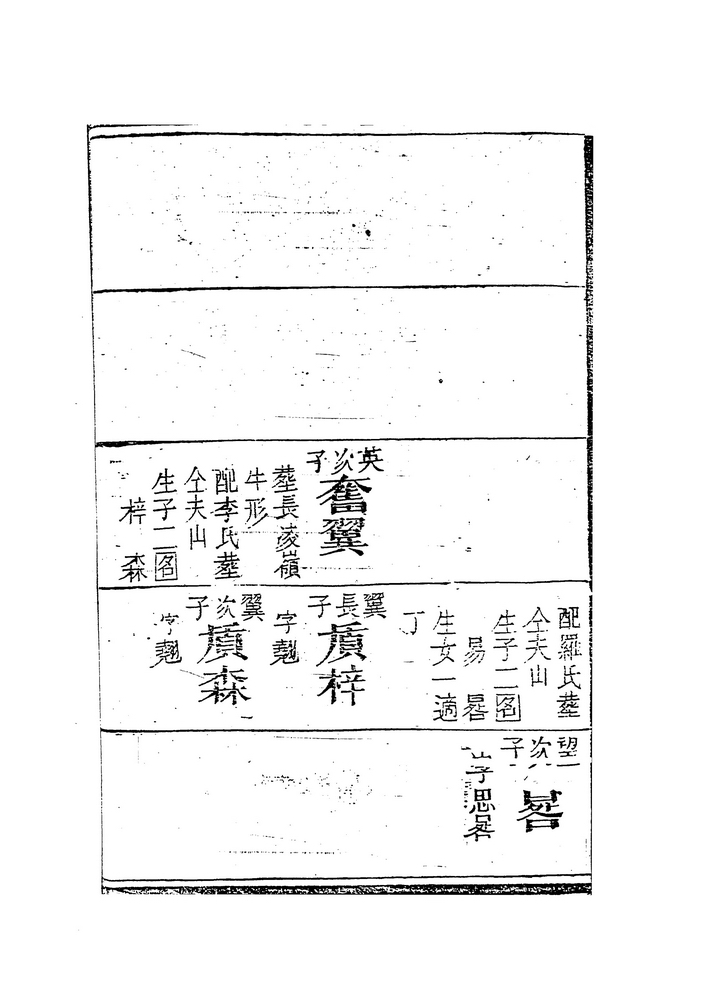 英次子
奮翼
葬長凌嶺
牛形
配李氏葬
仝夫山
生子二名
梓 森
配羅氏葬
仝夫山
生子二名
易 晷
生女一適
丁
翼長子
質梓
字翹
翼次子
質森
字翹
望次子
晷
字思晷